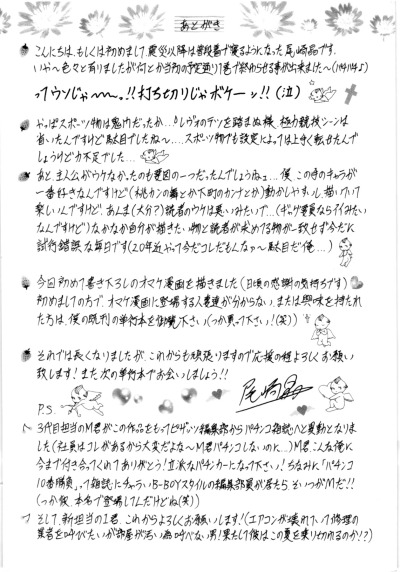 あとがき
こんにちは、もしくは初めまして、震災以降は普段着で寝るようになった尾崎晶です。
いや〜色々と有りましたが何とか当初の予定通り1巻で終わらせる事が出来ました〜(パチパチ♪)
ってウソじゃ〜〜。!!打ち切りじゃボケーッ!!(泣)
やっぱスポーツ物は鬼門だったか…。
省いたんですけど駄目でしたね〜…。スポーツ物でも設定によっては上手く転せたんで
しょうけど力不足でした…
あと、主人公がウケなかったのも要因の一つだったんでしょうねェ…僕、この時のキャラが
一番好きなんですけど(桃カンの舞とか下町のカンナとか)動かしやすいし描いていて
楽しいんですけど、あんま(大分?)読者のウケは悪いみたいで…(ギャグ要員ならイイみたい
なんですけど)なかなか自分が描きたい物と読者が求めてる物が一致せず今だに
試行錯誤な毎日です(20年近くやって今だコレだもんなぁ〜駄目だ俺…)
今回初めて書き下ろしのオマケ漫画を描きました(日頃の感謝の気持ちです)
初めましての方で、オマケ漫画に登場する人妻達が分からない、または興味を持たれ
た方は、僕の既刊の単行本を御覧下さい(つか買って下さい)!(笑)
それでは長くなりましたが、これからも頑張りますので応援の程よろしくお願い
致します!また次の単行本でお会いしましょう!!
尾崎晶
P.S.
3代目担当のM君がこの作品をもって編集部からパチンコ雑誌へと異動となりま
した(社員はコレがあるから大変だよな〜M君パチンコしないのに…)M君、こんな俺に
今まで付き合ってくれてありがとう!立派なパチンカーになって下さい!ちなみに「パチンコ
10番勝負」って雑誌にチャラいB-BOYスタイルの編集部員が居たら、そいつがMだ!!
(つか仮、本名で登場してんだけどね(笑))
そして、新担当のI君、これからよろしくお願いします!(エアコンが壊れていて修理の
業者を呼びたいが部屋が汚い為呼べない男!果たして彼はこの夏を乗り切れるのか!?)